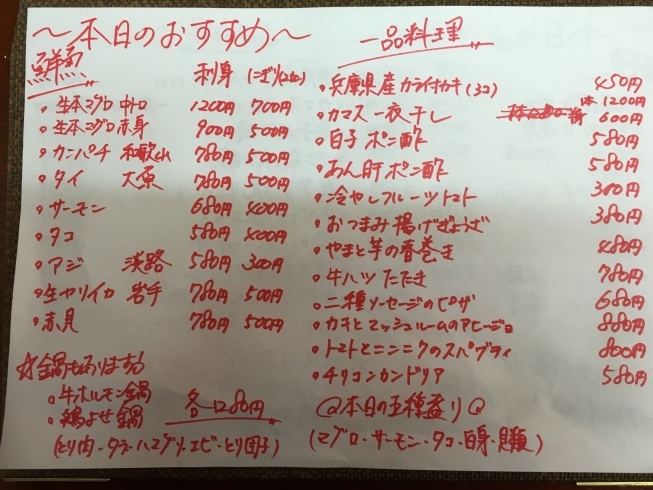 〜本日のおすすめ〜
鮮魚 刺身 (にぎり2カン)
・生本マグロ 中トロ 1200円 700円
・生本マグロ 赤身 900円 500円
・カンパチ 和歌山 780円 500円
・タイ 大原 780円 500円
・サーモン 680円 400円
・タコ 580円 400円
・アジ 淡路 580円 300円
・生ヤリイカ 岩手 780円 500円
・赤貝 780円 500円
☆鍋もあります
・牛ホルモン鍋
・鶏よせ鍋
各1280円
(とり肉・タラ・ハマグリ・エビ・とり団子)
一品料理
・兵庫県産カラ付カキ(3コ) 450円
1本1200円
・カマス一夜干し 600円
・白子ポン酢 580円
・あん肝ポン酢 580円
・冷やしフルーツトマト 300円
・おつまみ揚げぎょうざ 380円
・やまと芋の春巻き 480円
・牛ハツたたき 780円
・二種ソーセージのピザ 680円
・カキとマッシュルームのアヒージョ 880円
・トマトとニンニクのスパゲティ 800円
・チリコンカンドリア 580円
◎本日の五種盛り◎
(マグロ・サーモン・タコ・白身・貝類)